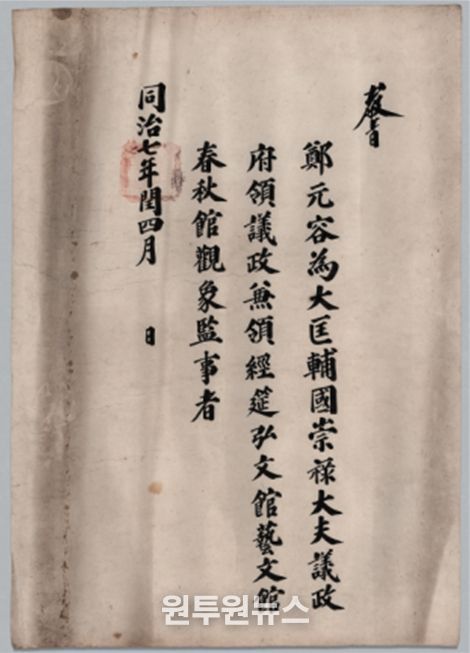 敎旨
鄭元容爲大匡輔國崇祿大夫議政
府領議政兼領經筵弘文館藝文館
春秋館觀象監事者
同治七年閏四月　　日
원투원뉴스